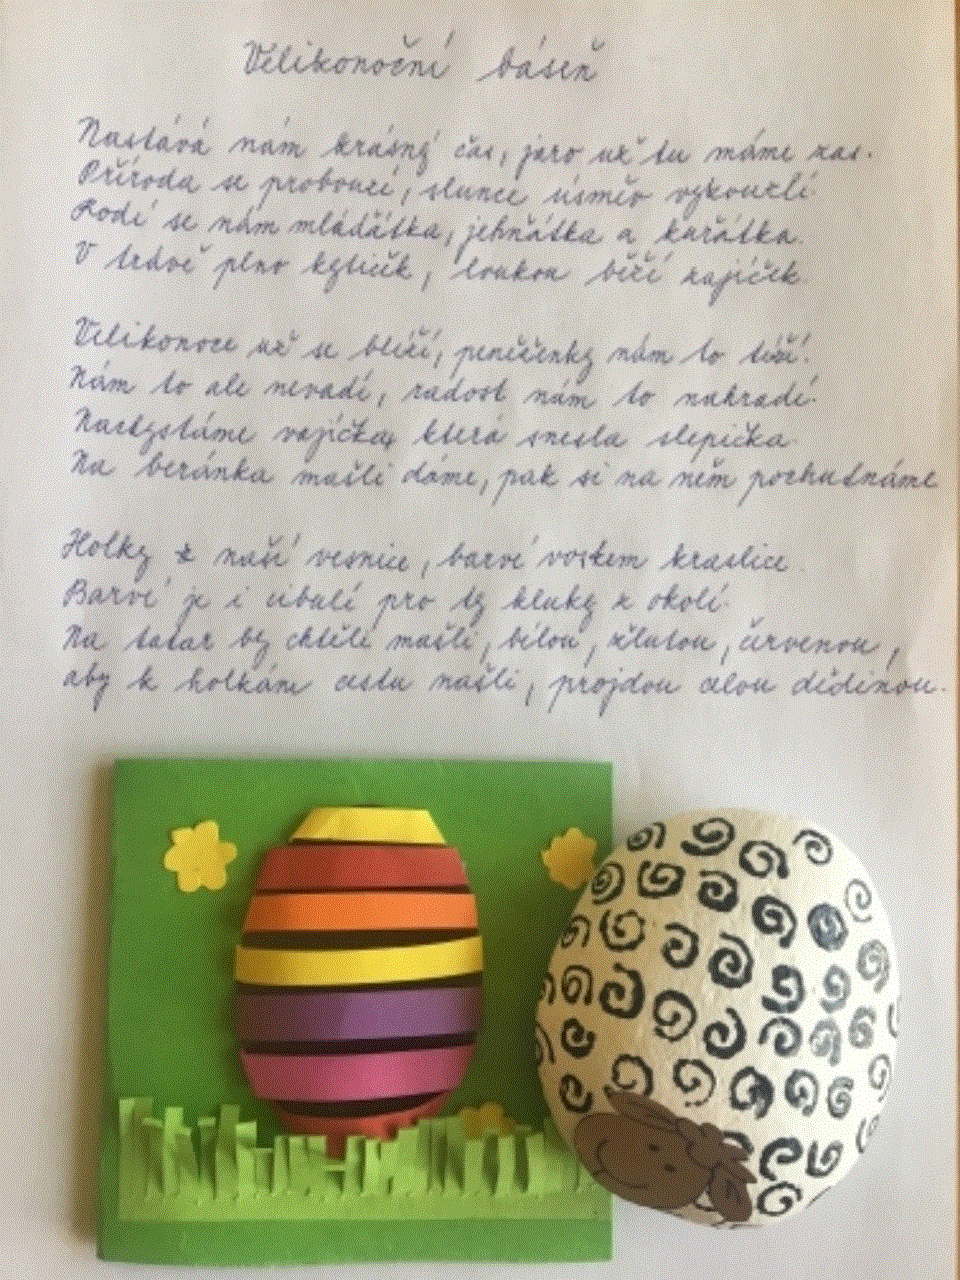 Velikonoční báseň
Nastává nám krásný čas, jaro už tu máme zas.
Příroda se probouzí, slunce úsměv vykouzlí.
Rodí se nám mláďátka, jehňátka a kuřátka.
V trávě plno kytiček, loukou běží zajíček.
Velikonoce už se blíží, peněženky nám to tíží.
Nám to ale nevadí, radost nám to nahradí.
Nachystáme vajíčka, která snesla slepička.
Na beránka mašli dáme, pak si na něm pochutnáme
Holky z naší vesnice, barví voskem kraslice.
Barví je i cibulí pro ty kluky z okolí.
Na tatar by chtěli mašli, bílou, žlutou, červenou,
aby k holkám cestu našli, projdou celou dědinou.